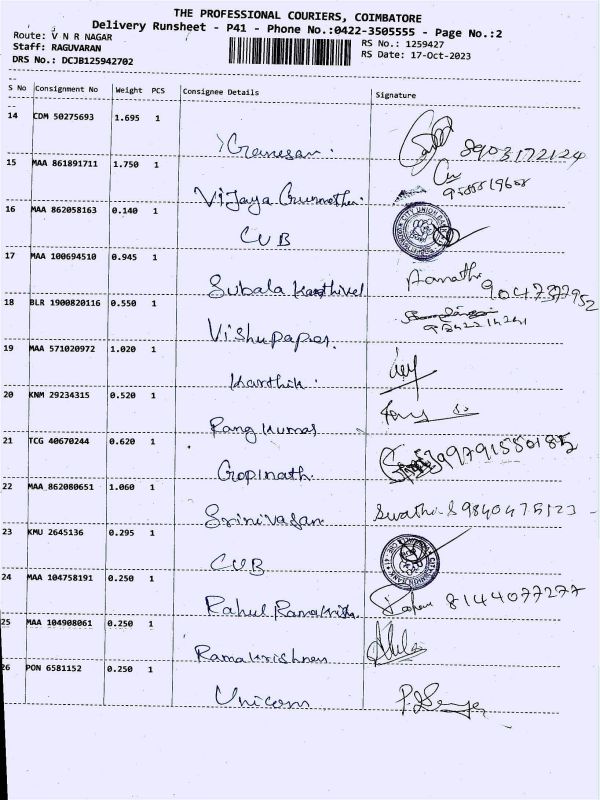 THE PROFESSIONAL COURIERS, COIMBATORE
Delivery Runsheet - P41 - Phone No.:0422-3505555 - Page No.:2
Route: V N R NAGAR
RS No.: 1259427
Staff: RAGUVARAN
RS Date: 17-Oct-2023
DRS No.: DCJB125942702
S No Consignment No Weight PCS Consignee Details Signature
14 CDM 50275693 1.695 1
Ganesan. 8903172124
15 MAA 861891711 1.750 1
Vijaya
16 MAA 862058163 0.140 1
CUB
17 MAA 100694510 0.945 1
Subala Karthivel 9047377952
18 BLR 1900820116 0.550 1
Vishupapes.
19 MAA 571020972 1.020 1
Karthik.
20 KNM 29234315 0.520 1
Rang Kumar
21 TCG 40670244 0.620 1
Gopinath 9791580185
22 MAA 862080651 1.060 1
Srinivasan Swathi.S 9840475123
23 KMU 2645136 0.295 1
CUB
24 MAA 104758191 0.250 1
Rahul 8144077277
25 MAA 104908061 0.250 1
Ramakrishnan
26 PON 6581152 0.250 1
Unicom